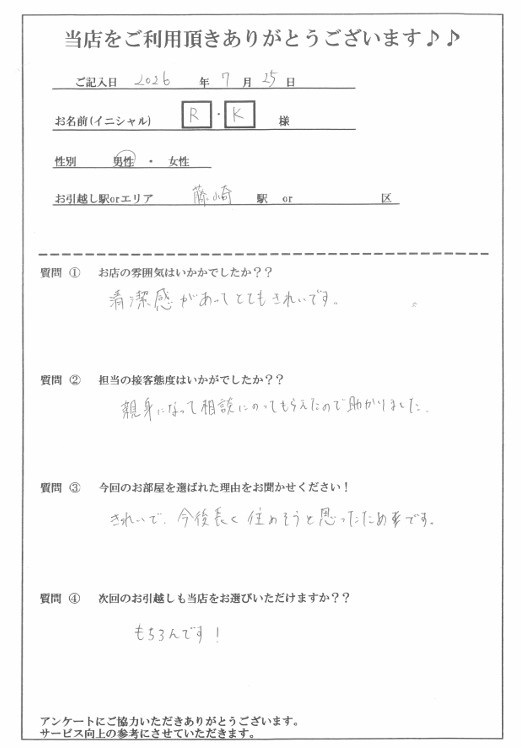 当店をご利用頂きありがとうございます♪♪
ご記入日 2026 年 7 月 25 日
お名前(イニシャル) R・K 様
性別 男性 ・ 女性
お引越し駅orエリア 藤崎 駅 or 区
質問 ① お店の雰囲気はいかかでしたか??
清潔感があってとてもきれいです。
質問 ② 担当の接客態度はいかがでしたか??
親身になって相談にのってもらえたので助かりました。
質問 ③ 今回のお部屋を選ばれた理由をお聞かせください!
きれいで、今後長く住めそうと思ったためです。
質問 ④ 次回のお引越しも当店をお選びいただけますか??
もちろんです!
アンケートにご協力いただきありがとうございます。
サービス向上の参考にさせていただきます。